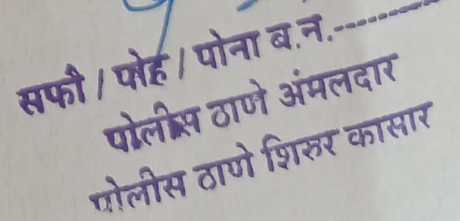 सफौ / पोह / पोना ब.न.-----------
पोलीस ठाणे अंमलदार
पोलीस ठाणे शिरुर कासार